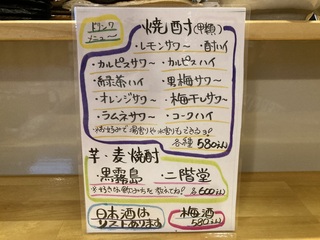 ドリンク
メニュー
焼酎(甲類)
・レモンサワー ・酎ハイ
・カルピスサワー ・カルピスハイ
・緑茶ハイ ・黒梅サワー
・オレンジサワー ・梅干しサワー
・ラムネサワー ・コークハイ
※お好みで湯割りや水割りもできるョ♪
各種 580(税込)
芋・麦焼酎
・黒霧島 ・二階堂
※好きな飲み方を教えてね♪ 各600(税込)
日本酒は
リストあります
梅酒
580(税込)